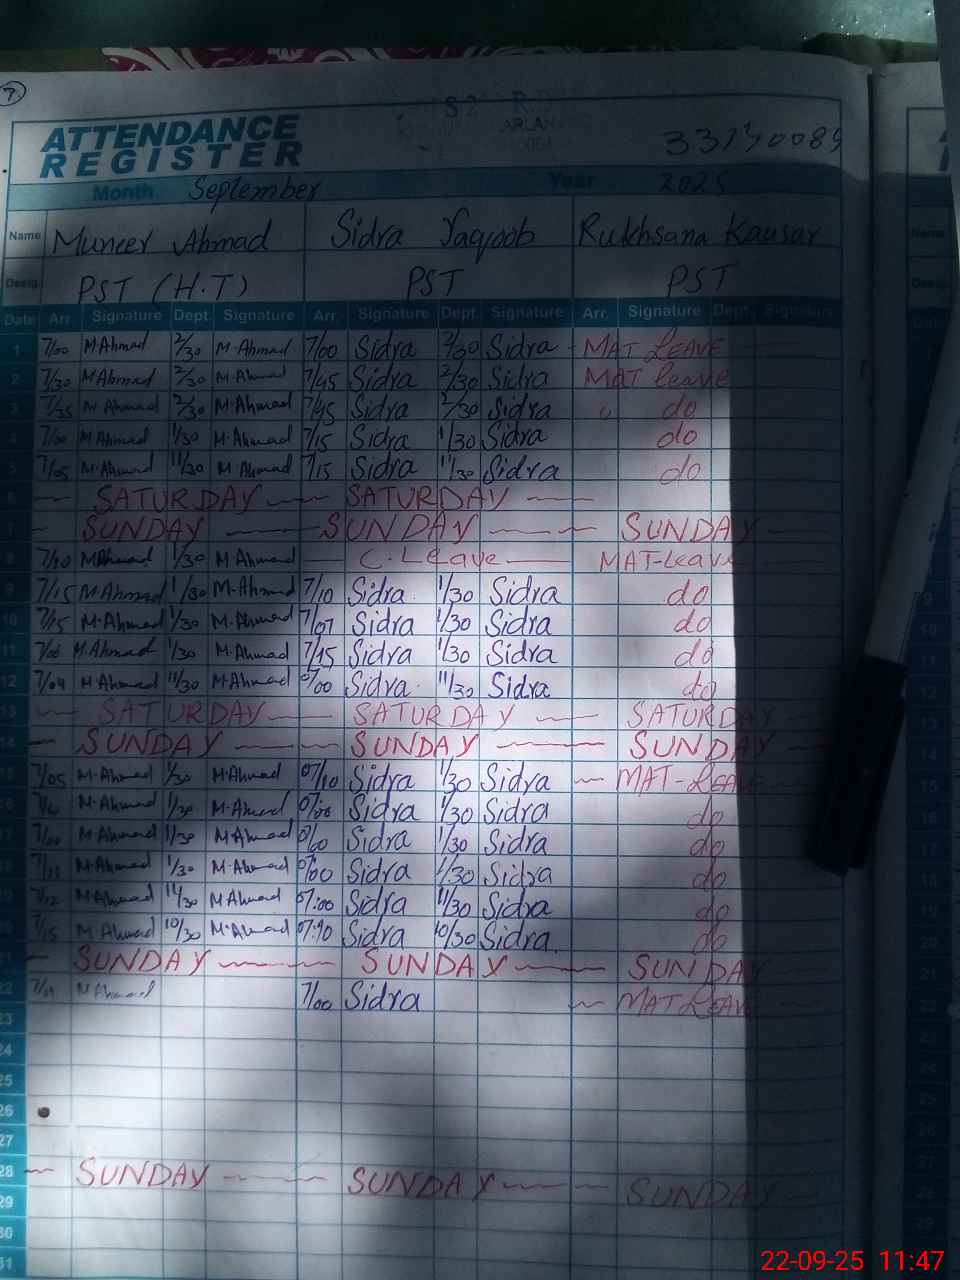 7
ATTENDANCE
REGISTER
33130089
Month September Year 2025
Name Muneer Ahmad Sidra Yaqoob Rukhsana Kausar
Desig. PST (H.T) PST PST
Date Arr. Signature Dept. Signature Arr. Signature Dept. Signature Arr. Signature Dept. Signature
1 7/00 M Ahmad 2/30 M.Ahmad 7/00 Sidra 2/30 Sidra MAT LEAVE
2 7/30 M Ahmad 2/30 M.Ahmad 7/45 Sidra 2/30 Sidra MAT leave
3 7/35 M Ahmad 2/30 M.Ahmad 7/45 Sidra 2/30 Sidra do
4 7/00 M Ahmad 1/30 M.Ahmad 7/15 Sidra 1/30 Sidra do
5 7/05 M.Ahmad 11/30 M Ahmad 7/15 Sidra 11/30 Sidra do
6 SATURDAY SATURDAY
7 SUNDAY SUNDAY SUNDAY
8 7/10 M Ahmad 1/30 M.Ahmad C.Leave MAT-Leave
9 7/15 M Ahmad 1/30 M.Ahmad 7/10 Sidra 1/30 Sidra do
10 7/15 M.Ahmad 1/30 M.Ahmad 7/07 Sidra 1/30 Sidra do
11 7/08 M.Ahmad 1/30 M.Ahmad 7/15 Sidra 1/30 Sidra do
12 7/04 M.Ahmad 11/30 M.Ahmad Sidra 11/30 Sidra do
13 SATURDAY SATURDAY SATURDAY
14 SUNDAY SUNDAY SUNDAY
15 7/05 M.Ahmad 1/30 M.Ahmad 07/10 Sidra 1/30 Sidra MAT-LEAVE
16 M.Ahmad 1/30 M.Ahmad 07/00 Sidra 1/30 Sidra do
17 7/00 M Ahmad 1/30 M.Ahmad Sidra 1/30 Sidra do
18 7/11 M.Ahmad 1/30 M.Ahmad 07/00 Sidra 1/30 Sidra do
19 7/12 M.Ahmad 11/30 M Ahmad 07:00 Sidra 11/30 Sidra do
20 7/15 M Ahmad 10/30 M.Ahmad Sidra 10/30 Sidra do
21 SUNDAY SUNDAY SUNDAY
22 M Ahmad 7/00 Sidra MAT LEAVE
23
24
25
26
27
28 SUNDAY SUNDAY SUNDAY
29
30
31
22-09-25 11:47